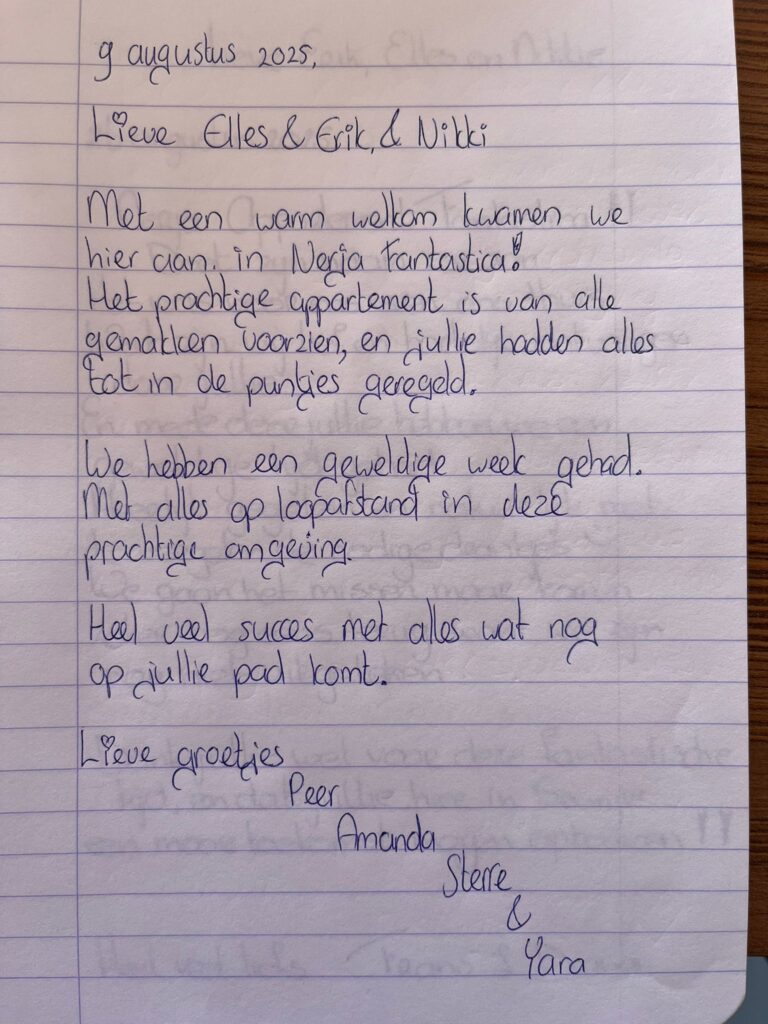 9 augustus 2025,
Lieve Elles & Erik, & Nikki
Met een warm welkom kwamen we
hier aan. in Nerja Fantastica!
Het prachtige appartement is van alle
gemakken voorzien, en jullie hadden alles
tot in de puntjes geregeld.
We hebben een geweldige week gehad.
Met alles op loopafstand in deze
prachtige omgeving.
Heel veel succes met alles wat nog
op jullie pad komt.
Lieve groetjes
Peer
Amanda
Sterre
&
Yara